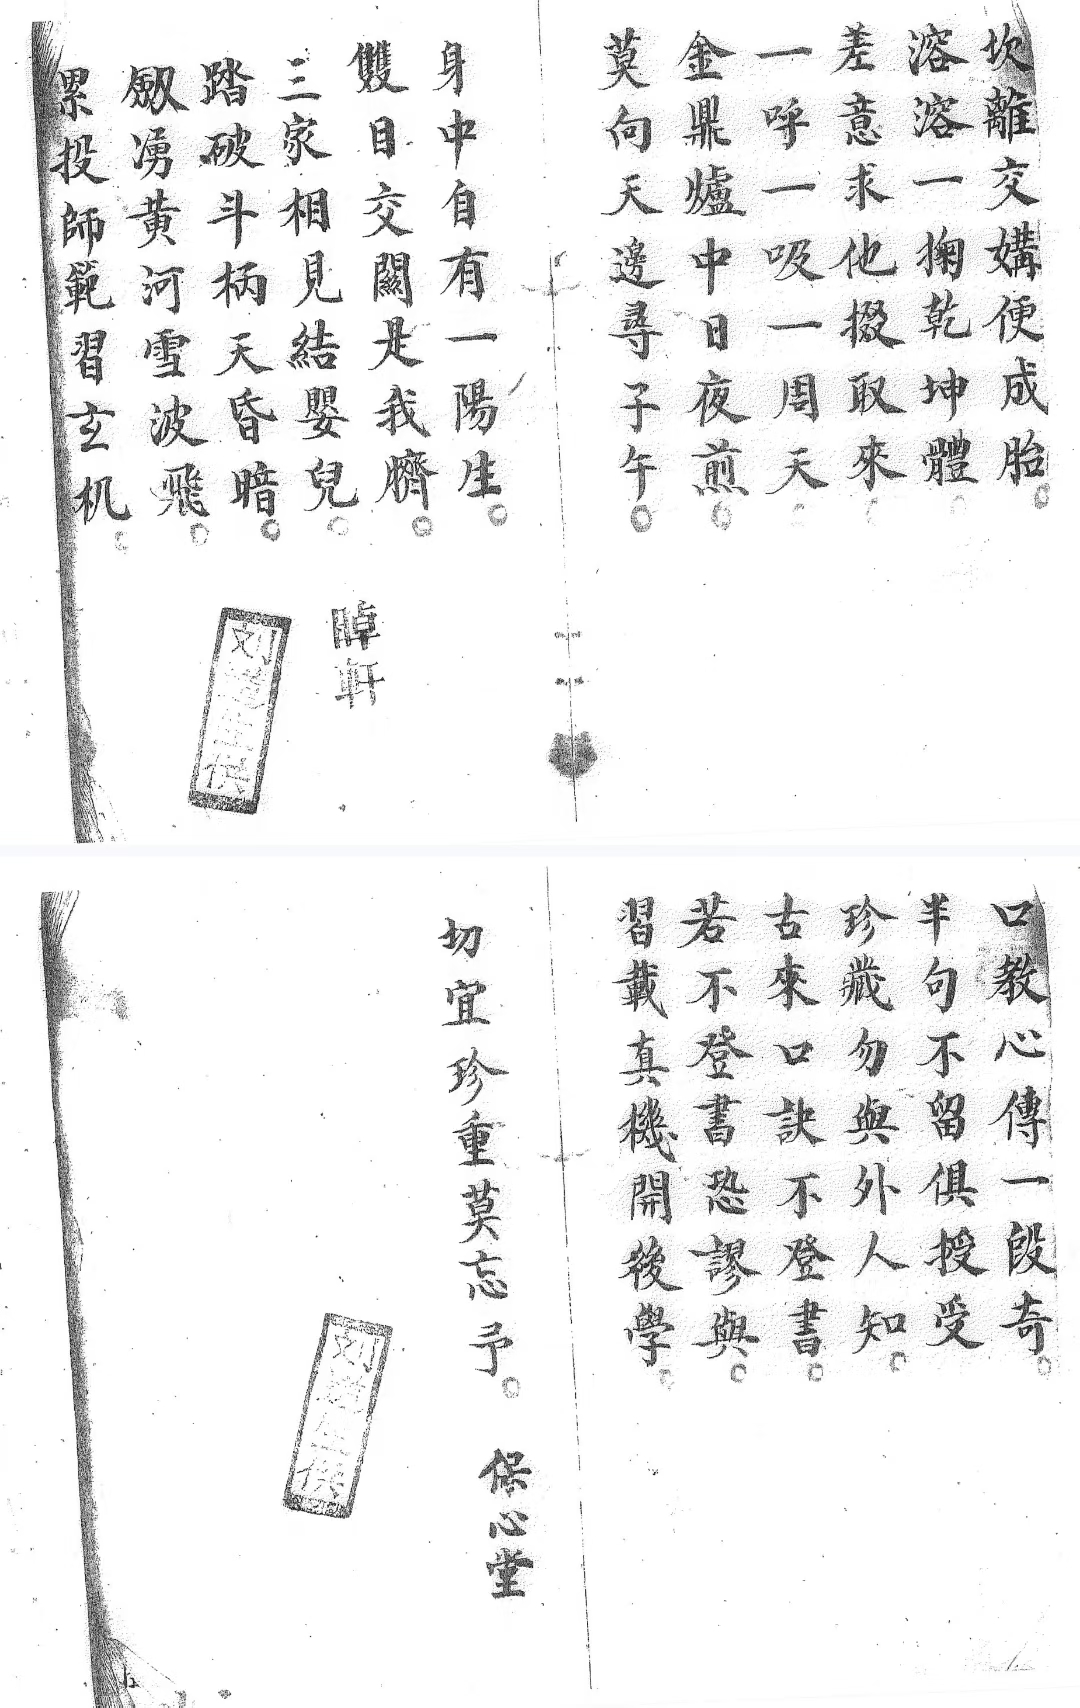 坎離交媾便成胎
溶溶一掬乾坤體
差意求他掇取來
一呼一吸一周天
金鼎爐中日夜煎
莫向天邊尋子午
身中自有一陽生
雙目交關是我臍
三家相見結嬰兒
踏破斗柄天昏暗
劔湧黃河雪波飛
累投師範習玄机
晫軒
刘道生供
口教心傳一段奇
半句不留俱授受
珍藏勿與外人知
古來口訣不登書
若不登書恐謬與
習載真機開後學
切宜珍重莫忘予
保心堂
刘道生供